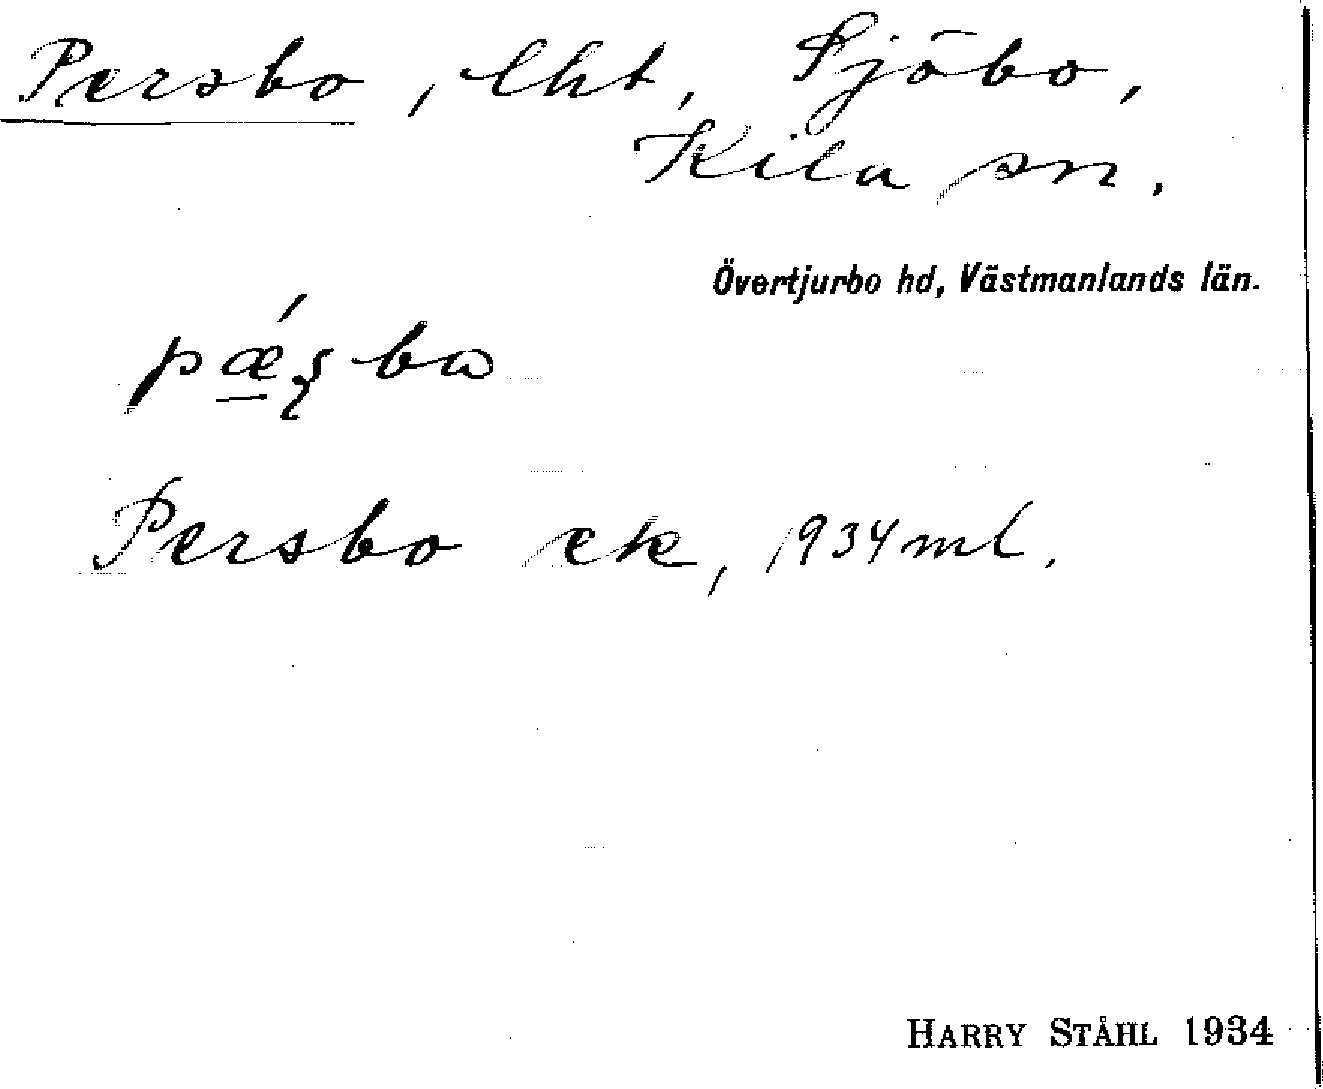 Persbo, lht, Sjöbo,
Kila sn.
Övertjurbo hd, Västmanlands län.
Persbo ek, 1934 ml.
HARRY STÅHL 1934